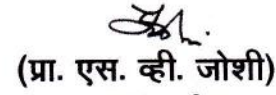 (प्रा. एस. व्ही. जोशी)